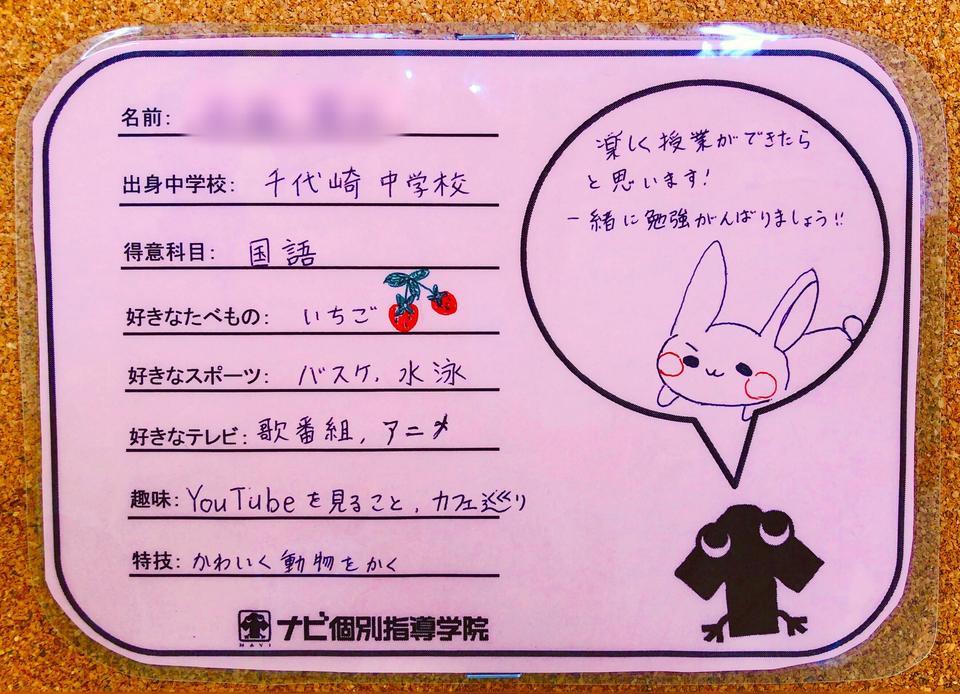 名前:
出身中学校: 千代崎中学校
得意科目: 国語
好きなたべもの: いちご
好きなスポーツ: バスケ、水泳
好きなテレビ: 歌番組、アニメ
趣味: YouTubeを見ること、カフェ巡り
特技: かわいく動物をかく
NAVI ナビ個別指導学院
楽しく授業ができたら
と思います!
一緒に勉強がんばりましょう!!